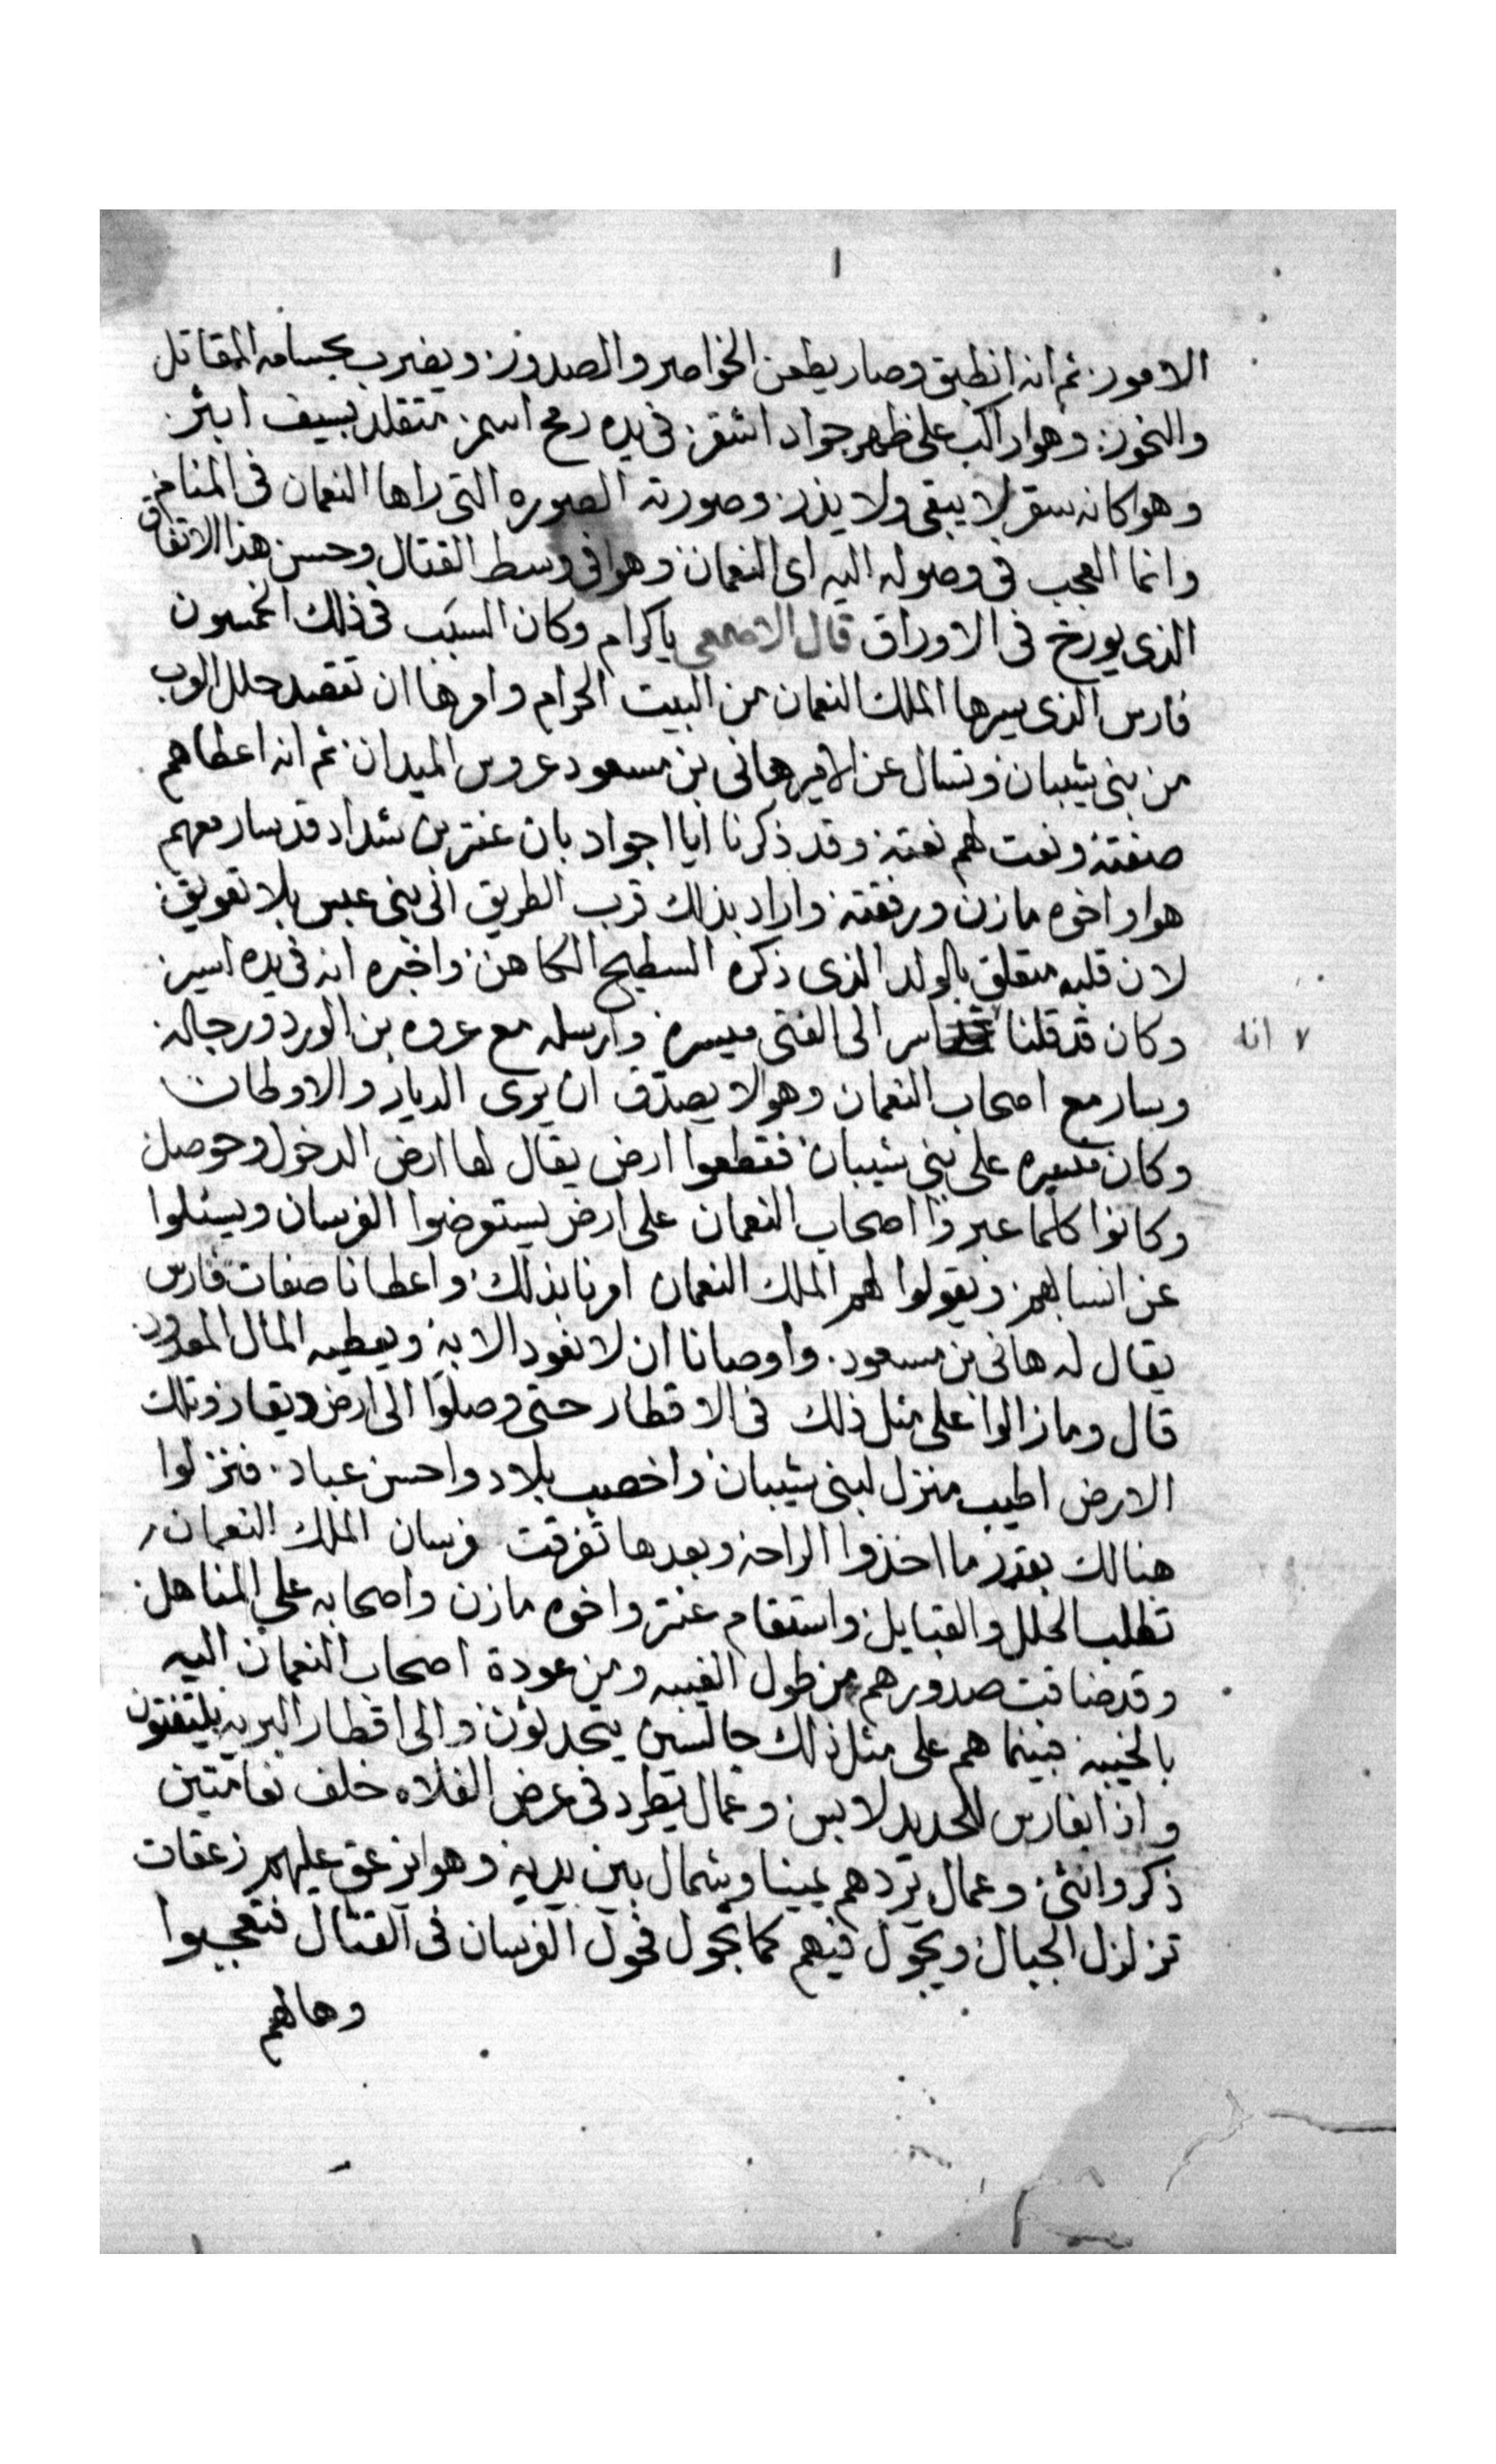 ١
الامور. ثم انه انطبق وصار يطعن الخواصر والصدور. ويضرب بحسامه المقاتل
والنحور. وهوا راكب على ظهر جواد اشقر. فى يده رمح اسمر. متقلد بسيف ابتر.
وهوا كانه سقر لا يبقى ولا يذر. وصورته الصوره التى راها النعمان فى المنام.
وانما العجب فى وصوله اليه اى النعمان. وهوا فى وسط القتال وحسن هذا الاتفاق
الذى يورخ فى الاوراق قال الاصمعى ياكرام وكان السبب فى ذلك الخمسون
فارس الذى سيرها الملك النعمان من البيت الحرام وامرها ان تقصد حلل العرب
من بنى شيبان وتسال عن الامير هانى بن مسعود عروس الميدان. ثم انه اعطاهم
صفته ونعت لهم نعته وقد ذكرنا ايا اجواد بان عنتر بن شداد قد سار معهم
هوا واخوه مازن ورفقته واراد بذلك قرب الطريق الى بنى عبس بلا تعويق.
لان قلبه متعلق بالولد الذى ذكره السطيح الكاهن. واخبره انه فى يده اسير.
وكان قد قلنا اسر الى الفتى ميسره. وارسله مع عروه بن الورد ورجاله.
٧ انه
وسار مع اصحاب النعمان وهو لا يصدق ان يرى الديار والاوطان
وكان مسيره على بنى شيبان فقطعوا ارض يقال لها ارض الدخول وحومل
وكانوا كلما عبروا اصحاب النعمان على ارض يستعرضوا الفرسان ويسئلوا
عن انسابهم. ويقولوا لهم الملك النعمان امرنا بذلك. واعطانا صفات فارس
يقال له هانى بن مسعود. واوصانا ان لا نعود الا به ويعطيه المال المعدود.
قال وما زالوا على مثل ذلك فى الاقطار حتى وصلوا الى ارض ذيقار وتلك
الارض اطيب منزل لبنى شيبان واخصب بلاد واحسن عباد. فنزلوا
هنالك بقدر ما اخذوا الراحه وبعدها تفرقت فرسان الملك النعمان
تطلب الحلل والقبايل واستقام عنتر واخوه مازن واصحابه على المناهل.
وقد ضاقت صدورهم من طول الغيبه ومن عودة اصحاب النعمان اليه
بالخيبه فبينما هم على مثل ذلك جالسين يتحدثون والى اقطار البريه يلتفتون
واذا بفارس للحديد لابس. وعمال يطرد فى عرض الفلاه خلف نعامتين
ذكر وانثى. وعمال يردهم يمينا وشمال بين يديه. وهوا يزعق عليهم زعقات
تزلزل الجبال ويجول فيهم كما تجول فحول الفرسان فى القتال فتعجبوا
وهالهم